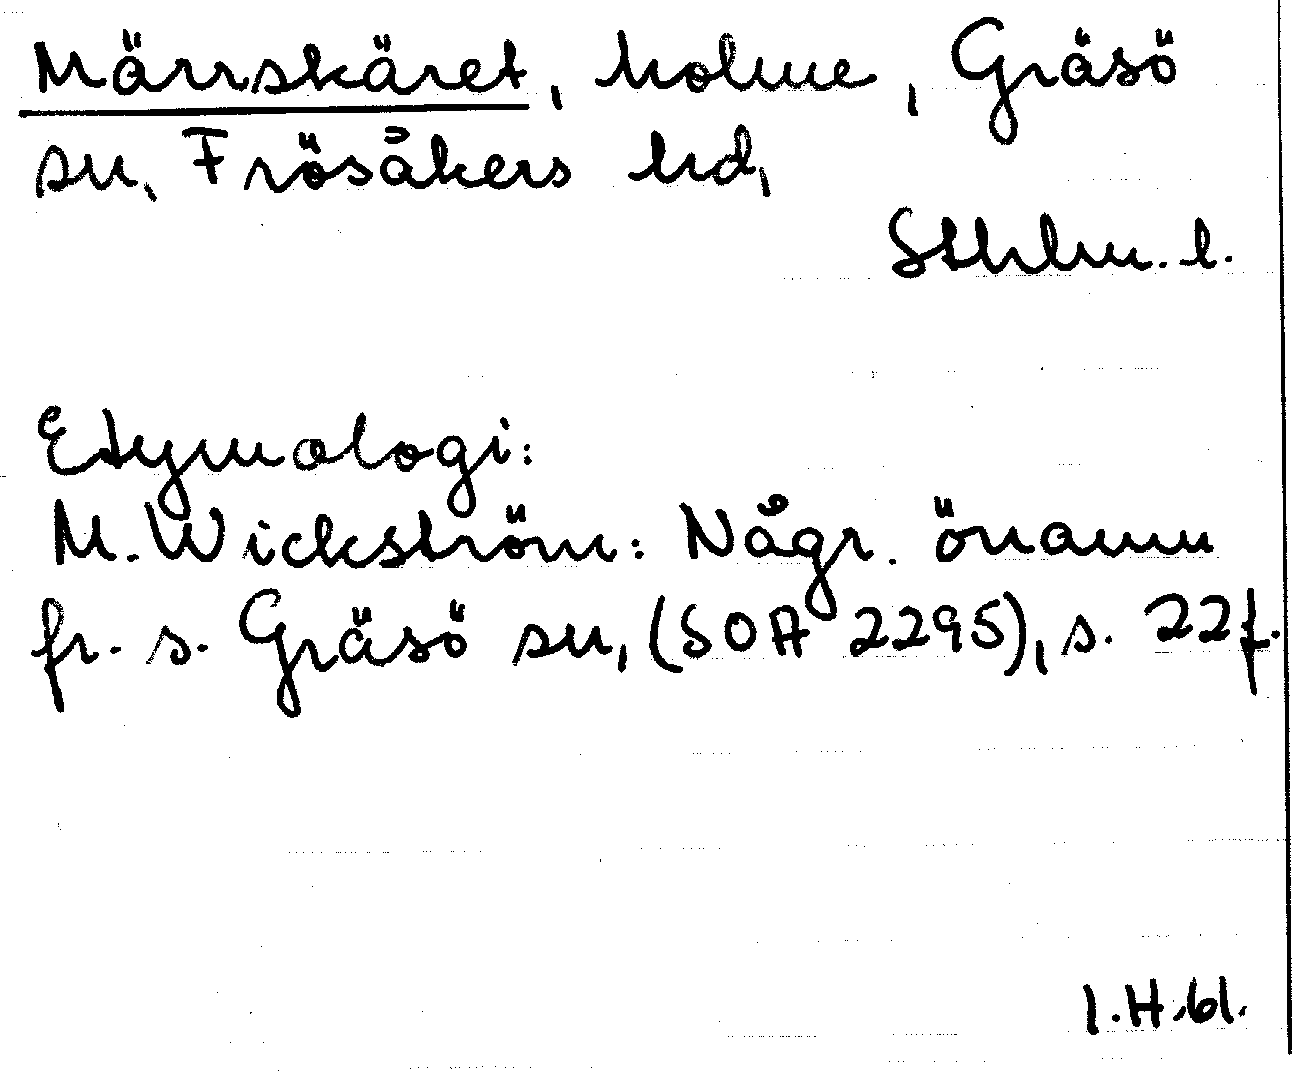 Märrskäret, holme, Gräsö
sn, Frösåkers hd,
Sthlm. l.
Etymologi:
M. Wickström: Någr. önamn
fr. s. Gräsö sn, (SOA 2295), s. 22f.
I.H.61.